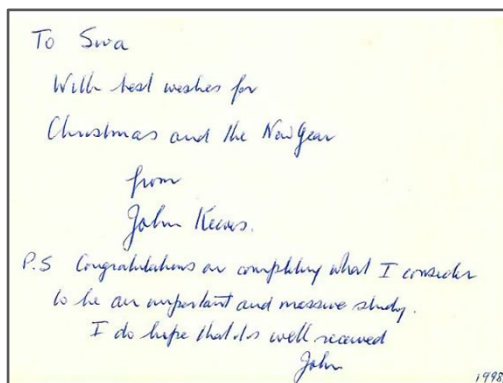 To Siva
With best wishes for
Christmas and the New Year
from
John Keeves.
P.S Congratulations on completing what I consider
to be an important and massive study.
I do hope that it is well received
John
1998